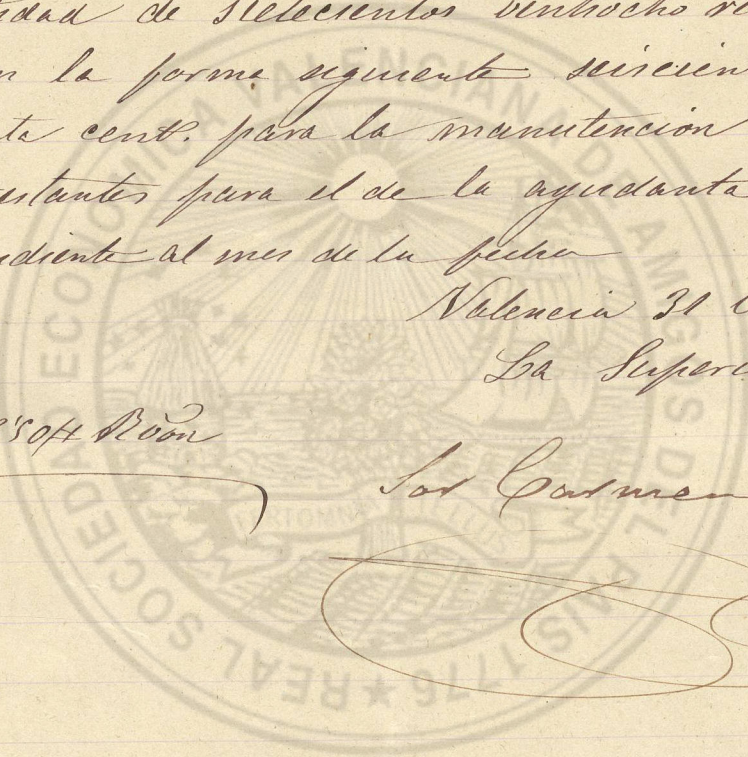 idad de Setecientos vintiocho re
n la forma siguiente seiscien
ta cent. para la manutencion
estantes para el de la ayudanta
ndiente al mes de la fecha
Valencia 31
La Superi
504 Rvon
Sor Carmen
REAL SOCIEDAD ECONOMICA VALENCIANA DE AMIGOS DEL PAIS 1776